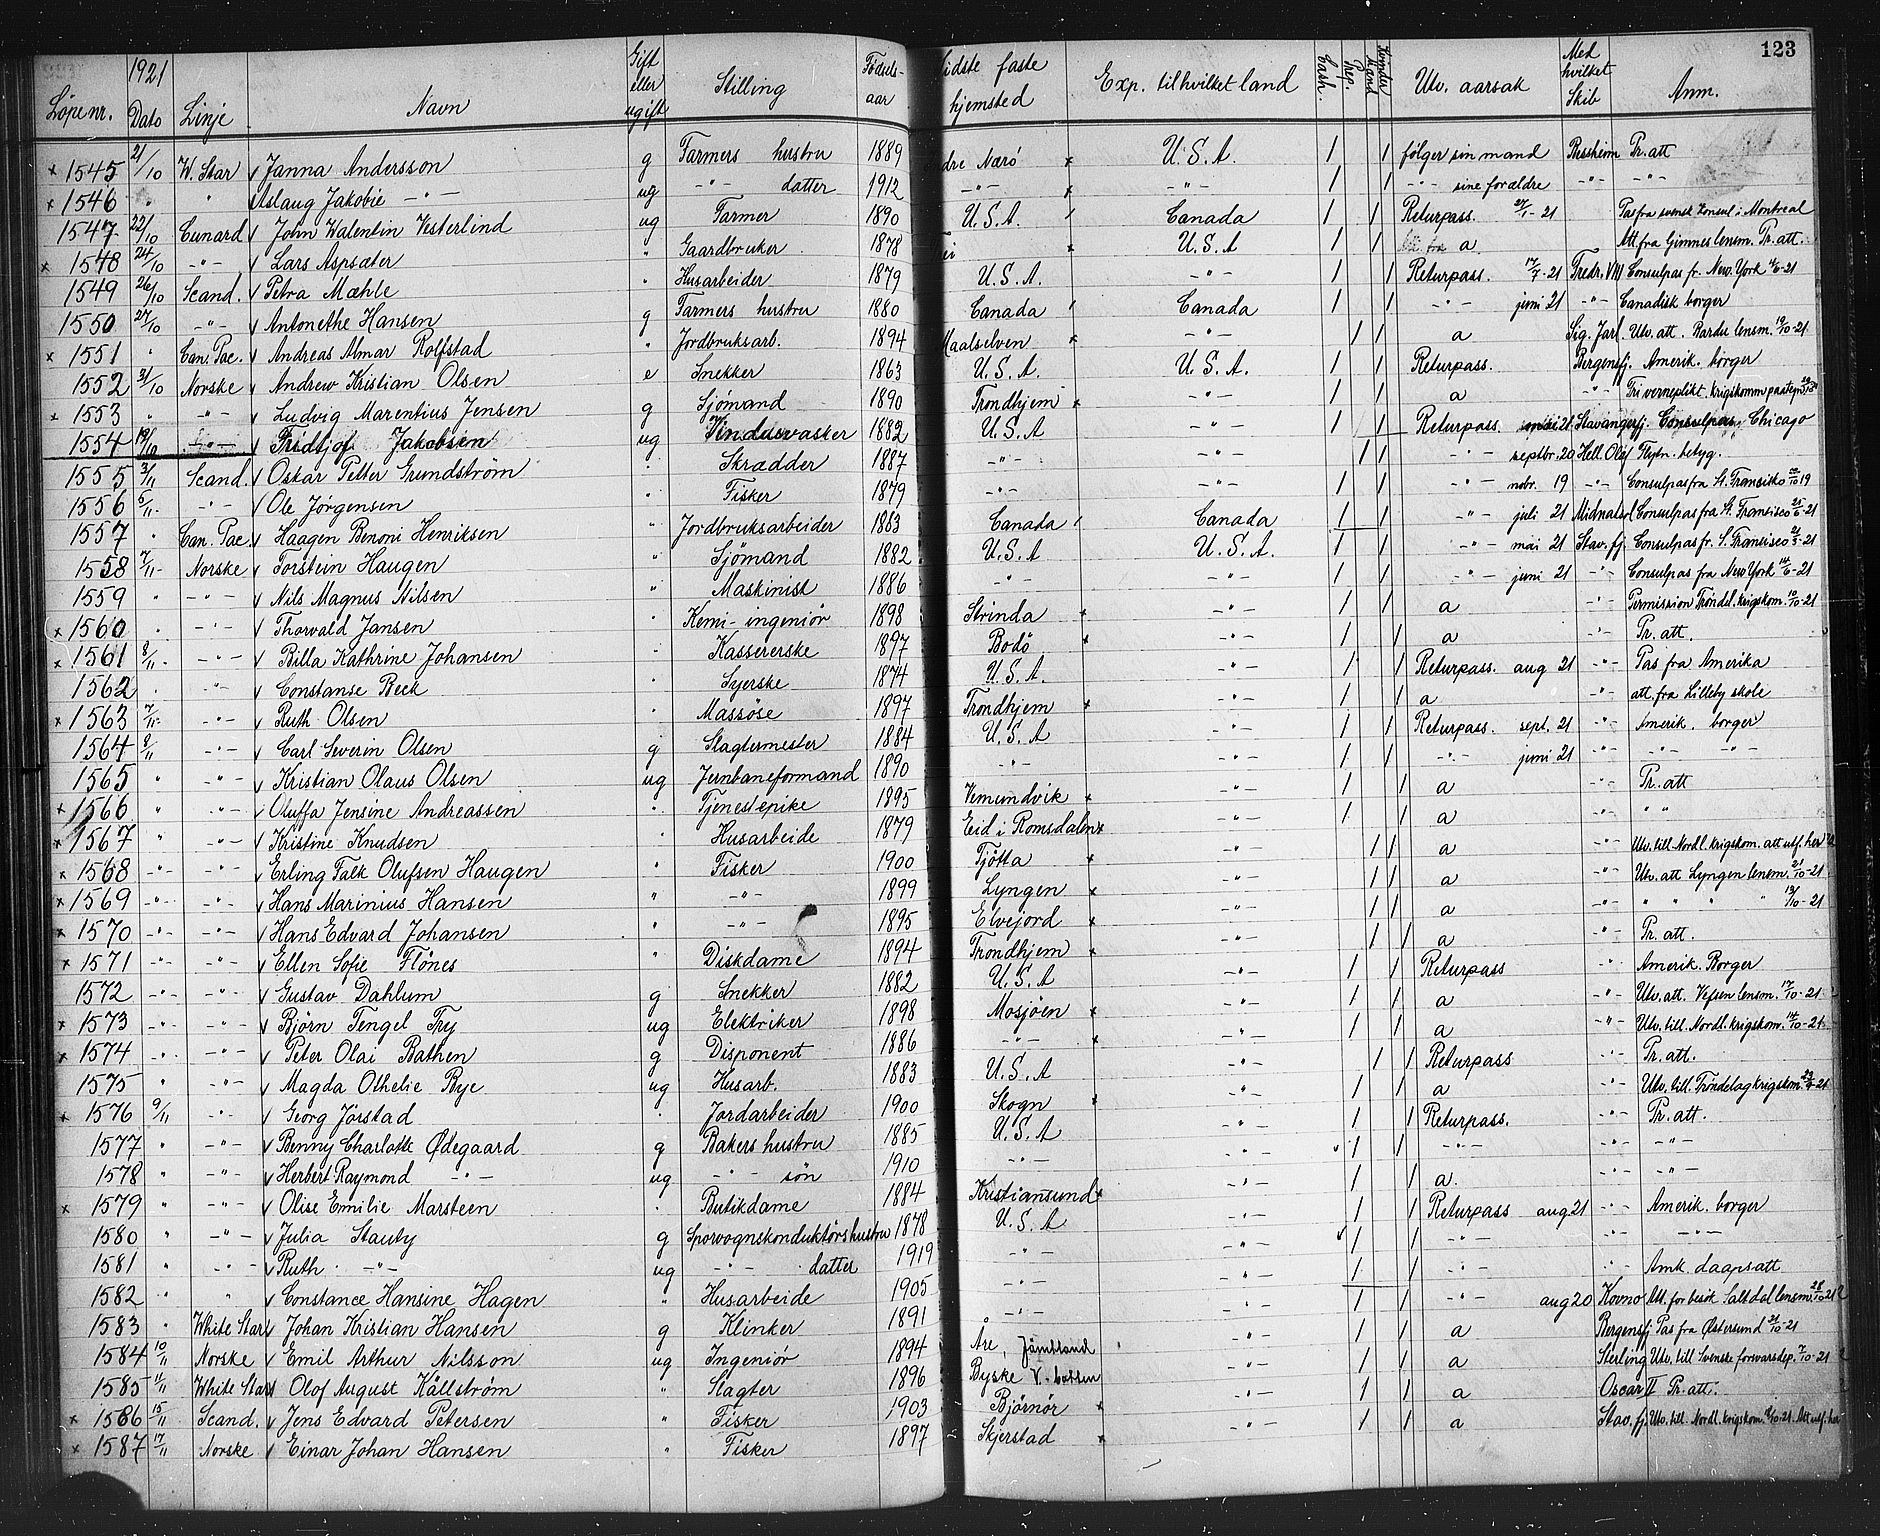 123
Löpe nr. 1921 Dato Linje Navn Gift eller ugift Stilling Födsels-aar sidste faste hjemsted Exp. til hvilket land Utv. aarsak Med hvilket Skib Anm.
x 1545 21/10 W. Star v Janna Andersson g Farmers hustru 1889 dre Nærö x U.S.A. 1 1 fölger sin mand Bessheim Pr. att
x 1546 " " Aslaug Jakobie -"- ug -"- datter 1912 -"- x -"- 1 1 -"- sine forældre -"- -"-
1547 22/10 Cunard v John Walentin Vesterlind ug Farmer 1890 U.S.A. Canada 1 1 Returpass. 27/1-21 Pas fra svensk konsul i Montreal
x 1548 24/10 -"- v Lars Aspsæter " Gaardbruker 1878 x U.S.A 1 1 a Att fra Gimnes lensm. Pr. att.
1549 26/10 Scand. v Petra Mæhle " Husarbeider 1879 U.S.A. -"- 1 1 Returpass. 17/7-21 Fredr. VIII Consulpas fr. New York 14/6-21
1550 27/10 -"- v Antonethe Hansen g Farmers hustru 1880 Canada Canada 1 1 -"- juni 21 -"- Canadisk borger
x 1551 " Can. Pac. v Andreas Almar Rolfstad " Jordbruksarb. 1894 Maalselven x -"- 1 1 a Sig. Jarl. Utv. att. Bardu lensm. 19/10-21
1552 31/10 Norske v Andrew Kristian Olsen e Snekker 1863 U.S.A. U.S.A. 1 1 Returpass. Bergensfj. Amerik. borger
x 1553 " -"- v Ludvig Marentius Jensen g Sjömand 1890 Trondhjem x -"- 1 1 a -"- Fri vernepligt. krigskomm
1554 19/10 -"- v Fridtjof Jakobsen ug Vinduesvasker 1882 U.S.A -"- 1 1 Returpass. mai 21 Stavangerfj. Consulpas Chicago
1555 3/11 Scand. v Oskar Petter Grundström " Skrædder 1887 -"- -"- 1 1 -"- septbr. 20 Hell. Olaf Flytn. betyg.
1556 5/11 -"- v Ole Jörgensen " Fisker 1879 -"- -"- 1 1 -"- nobr. 19 -"- Consulpas fra St. Fransisko 19
1557 " Can. Pac. v Haagen Benoni Henriksen " Jordbruksarbeider 1863 Canada Canada 1 1 -"- juli 21 Midnatsol Consulpas fra S. Francisco 25/6-21
1558 7/11 Norske v Torstein Haugen " Sjömand 1882 U.S.A U.S.A. 1 1 -"- mai 21 Stav. fj. Consulpas fr. S. Francisco 21/3-21
1559 " -"- v Nils Magnus Nilsen " Maskinist 1886 -"- -"- 1 1 -"- juni 21 -"- Consulpas fra New York 14/6-21
x 1560 " -"- v Thorvald Jansen " Kemi-ingeniör 1898 Strinda x -"- 1 1 a -"- Permission Tröndl. krigskom. 10/10-21
x 1561 8/11 -"- v Billa Kathrine Johansen " Kassererske 1897 Bodö x -"- 1 1 a -"- Pr. att.
1562 " -"- v Constanse Beck " Syerske 1874 U.S.A. -"- 1 1 Returpass. aug 21 -"- Pas fra Amerika
x 1563 7/11 -"- v Ruth Olsen " Massöse 1897 Trondhjem x -"- 1 1 a -"- att. fra Lilleby skole
1564 8/11 -"- v Carl Severin Olsen g Slagtermester 1884 U.S.A -"- 1 1 Returpass. sept. 21 -"- Amerik. borger
1565 " -"- v Kristian Olaus Olsen ug Jernbaneformand 1890 -"- -"- 1 1 -"- juni 21 -"- -"- -"-
x 1566 " -"- v Oluffa Jensine Andreassen " Tjenestepike 1895 Vemundvik x -"- 1 1 a -"- Pr. att
x 1567 " -"- v Kristine Knudsen " Husarbeide 1879 Eid i Romsdalen x -"- 1 1 a -"- " "
x 1568 -"- -"- v Erling Falk Olufsen Haugen " Fisker 1900 Tjötta x -"- 1 1 a -"- Utv. till Nordl. krigskom. att utf. her
x 1569 -"- -"- v Hans Marinius Hansen " -"- 1899 Lyngen x -"- 1 1 a -"- Utv. att Lyngen lensm. 21/10-21
x 1570 -"- -"- v Hans Edvard Johansen " -"- 1895 Elvejord x -"- 1 1 a -"- " " " " 13/10-21
x 1571 -"- -"- v Ellen Sofie Flönes " Diskdame 1894 Trondhjem x -"- 1 1 a -"- Pr. att.
1572 -"- -"- v Gustav Dahlum g Snekker 1882 U.S.A -"- 1 1 Returpass -"- Amerik. Borger
x 1573 -"- -"- v Björn Tengel Fry ug Elektriker 1898 Mosjöen x -"- 1 1 a -"- Utv. att. Vefsen lensm. 17/10-21
x 1574 -"- -"- v Peter Olai Bathen g Disponent 1886 -"- x -"- 1 1 a -"- Utv. till. Nordl. krigskom. 14/10-21
1575 " -"- v Magda Othelie Bye ug Husarb. 1883 U.S.A -"- 1 1 Returpass -"- Pr. att.
x 1576 9/11 -"- v Georg Jorstad " Jordarbeider 1900 Skogn x -"- 1 1 a -"- Utv. till. Tröndelag krigskom.
1577 " -"- v Benny Charlotte Ødegaard g Bakers hustru 1885 U.S.A -"- 1 1 Returpass. -"- Pr. att.
1578 " -"- v Herbert Raymond -"- ug -"- sön 1910 -"- -"- 1 1 -"- -"- -"-
x 1579 " -"- v Olise Emilie Marsteen " Butikdame 1884 Kristiansund x -"- 1 1 a. -"- -"-
1580 " -"- v Julia Stauby g Sporvognskonduktörshustru 1878 U.S.A -"- 1 1 Returpass aug 21 -"- Amerik. borger
1581 " -"- v Ruth -"- ug -"- datter 1919 -"- -"- 1 1 -"- -"- -"-
1582 " " v Constance Hansine Hagen " Husarbeide 1905 -"- -"- 1 1 -"- -"- Amk. daapsatt
1583 " White Star v Johan Kristian Hansen g Klinker 1891 -"- -"- 1 1 -"- aug 20 Kovno Att. for besök Saltdal lensm. 28/10 21
1584 10/11 Norske v Emil Arthur Nilsson ug Ingeniör 1894 Åre, Jämtland -"- 1 1 a Bergensfj Pas fra Østersund 21/10-21
1585 11/11 White Star v Olof August Källström " Slagter 1896 Byske V-botten -"- 1 1 a Sterling Utv. till Svenske forsvarsdep. 7/10-21
x 1586 15/11 Scand. v Jens Edvard Petersen " Fisker 1903 Björnör x -"- 1 1 a Oscar II Pr. att.
x 1587 17/11 Norske v Einar Johan Hansen " Fisker 1897 Skjerstad x -"- 1 1 a Stav. fj. Utv. till. Nordl. krigskom. Att utf. her